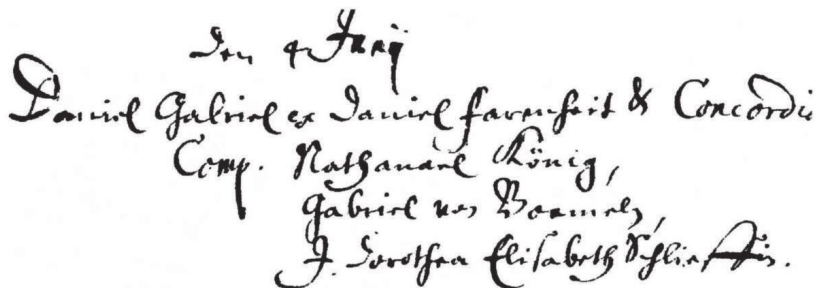 Den 4 Junij
Daniel Gabriel ex Daniel Farenheit & Concordia
Comp. Nathanael König,
Gabriel von Bommeln,
J. Dorothea Elisabeth Schlieffin.